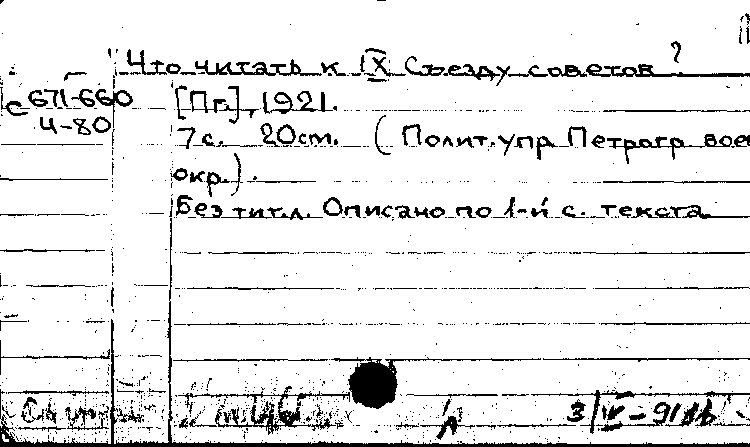 Что читать к IX Съезду советов?
с 671-660
Ч-80
[Пг.], 1921.
7 с. 20 см. (Полит. упр. Петрогр. воен
окр.).
Без тит. л. Описано по 1-й с. текста
3/IV-91